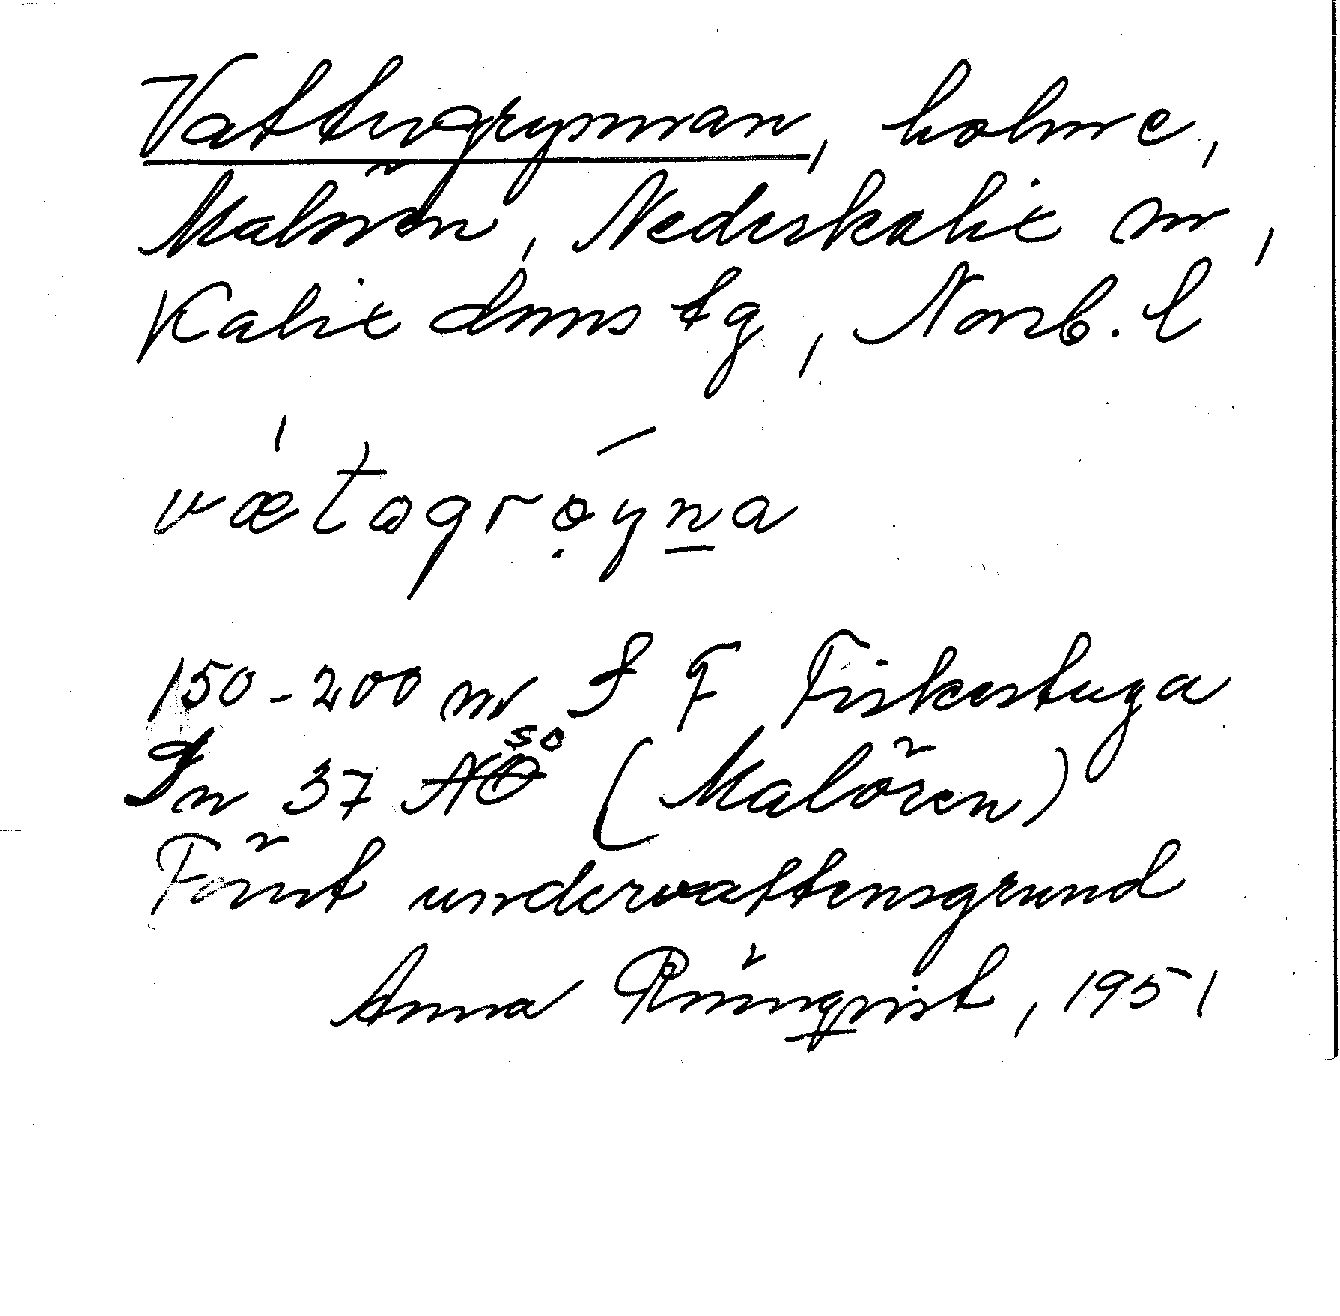 Vattugrynnan, holme,
Malören, Nederkalix sn,
Kalix dmns tg, Norrb. l
vætagrøyna
150-200 m S F Fiskestuga
In 37 NO SO (Malören)
Förut undervattensgrund
Anna Rönnqvist, 1951